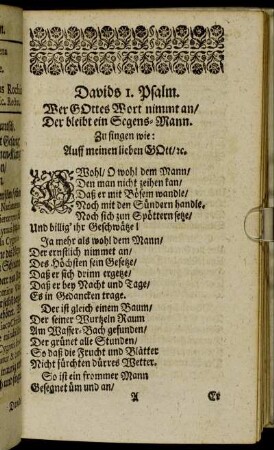 Davids 1. Psalm.
Wer GOttes Wort nimmt an/
Der bleibt ein Segens-Mann.
Zu singen wie:
Auff meinen lieben GOtt/ ꝛc.
O Wohl/ O wohl dem Mann/
Den man nicht zeihen kan/
Daß er mit Bösem wandle/
Noch mit den Sündern handle,
Noch sich zun Spöttern setze/
Und billig' ihr Geschwätze!
Ja mehr als wohl dem Mann/
Der ernstlich nimmet an/
Des Höchsten sein Gesetze/
Daß er sich drinn ergetze/
Daß er bey Nacht und Tage/
Es in Gedancken trage.
Der ist gleich einem Baum/
Der seiner Wurtzeln Raum
Am Wasser-Bach gefunden/
Der grünet alle Stunden/
So daß die Frucht und Blätter
Nicht fürchten dürres Wetter.
So ist ein frommer Mann
Gesegnet üm und an/
A Er